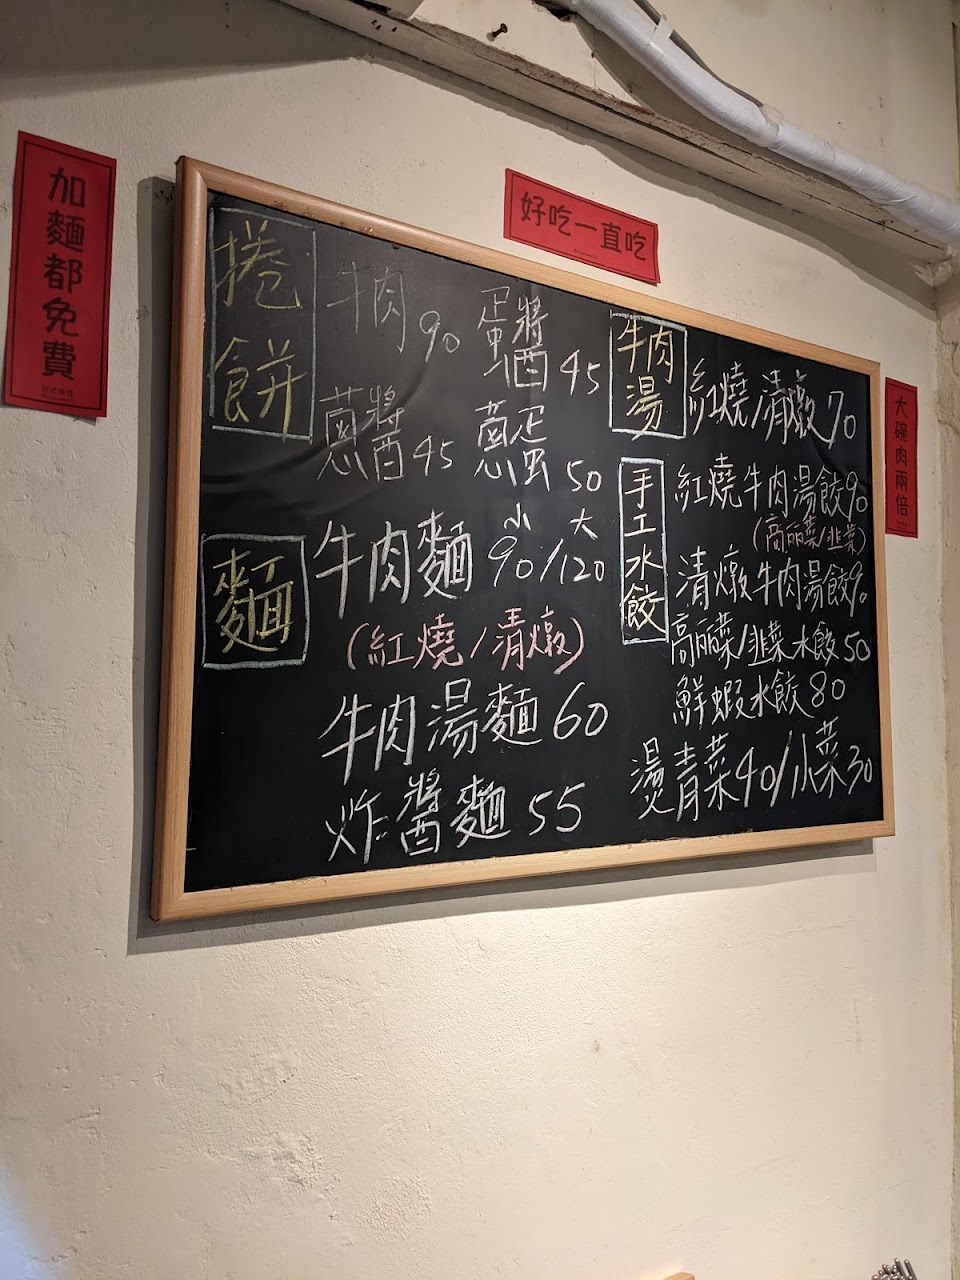 加麵都免費
好吃一直吃
大碗肉兩倍
捲餅
牛肉 90 蛋醬 45
蔥醬 45 蔥蛋 50
麵
小 大
牛肉麵 90/120
(紅燒/清燉)
牛肉湯麵 60
炸醬麵 55
牛肉湯
紅燒/清燉 70
手工水餃
紅燒牛肉湯餃 90
(高麗菜/韭菜)
清燉牛肉湯餃 90
高麗菜/韭菜水餃 50
鮮蝦水餃 80
燙青菜 40/小菜 30